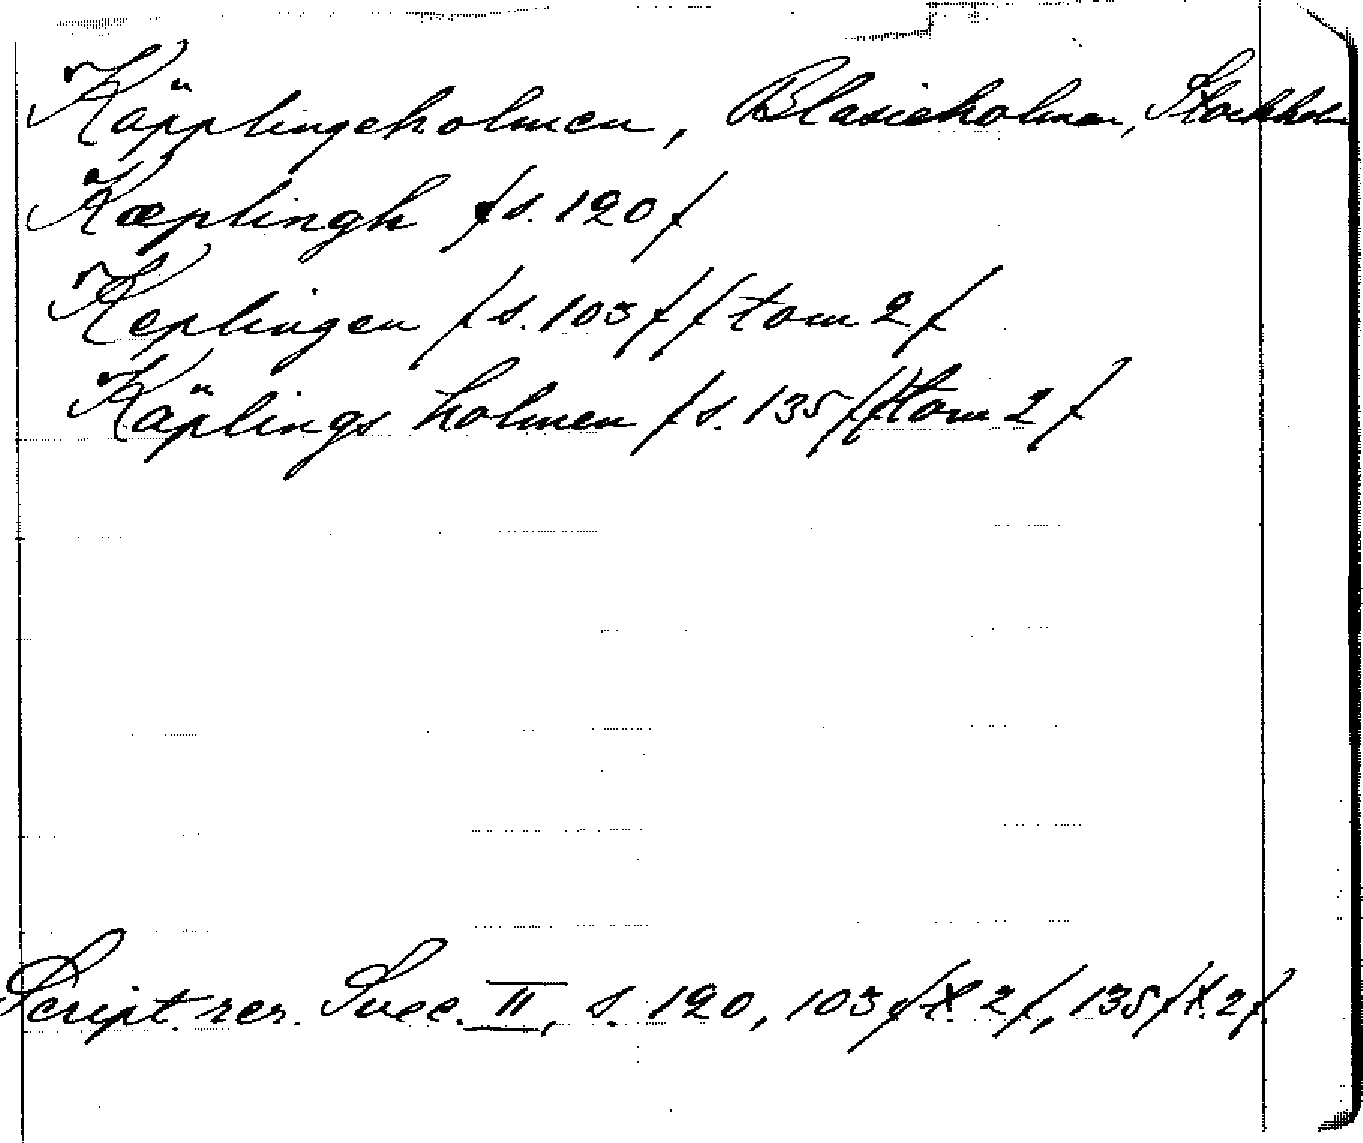 Käpplingeholmen, Blasieholmen, Stockholm
Kæplingh /s. 120/
Keplingen /s. 103/ /tom 2/
Käplings holmen /s. 135/ /tom 2/
Script. rer. Svec. II, s. 120, 103 /t. 2/, 135 /t. 2/